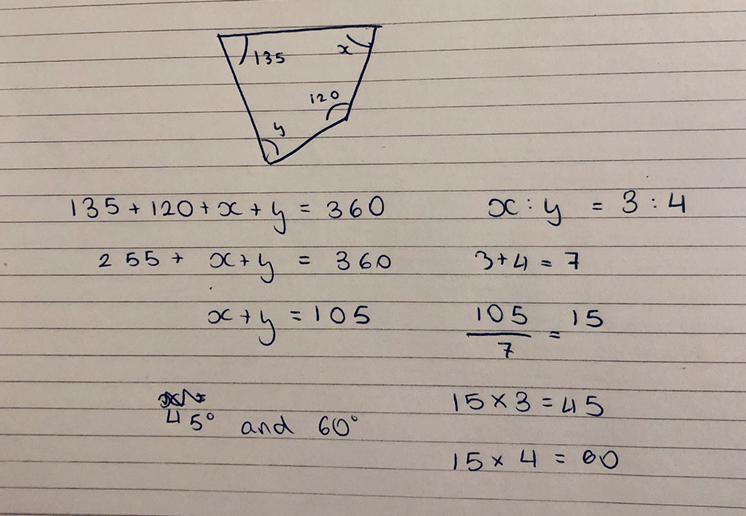 135
x
120
y
135 + 120 + x + y = 360
255 + x + y = 360
x + y = 105
45° and 60°
x : y = 3 : 4
3 + 4 = 7
105
7
= 15
15 × 3 = 45
15 × 4 = 60